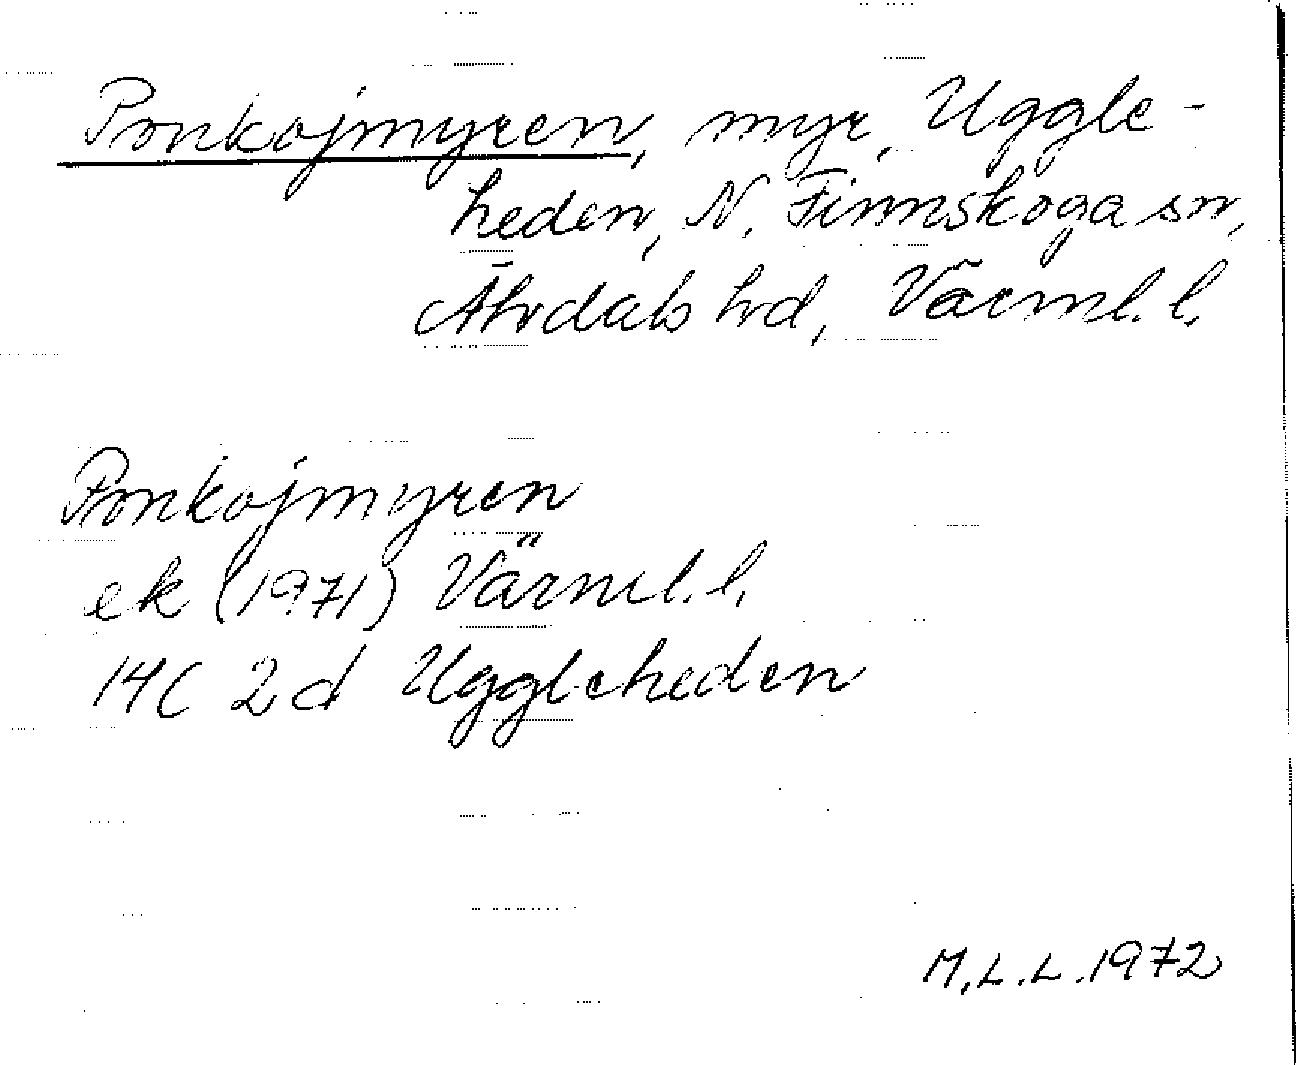 Ponkojmyren, myr, Uggle-
heden, N. Finnskoga sn,
Älvdals hd, Värml. l.
Ponkojmyren
ek (1971) Värml. l.
14C 2d Uggleheden
M.L.L. 1972